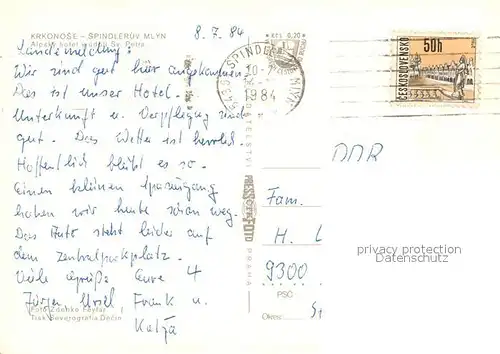 KRKONOŠE – ŠPINDLERŮV MLÝN
Alpský hotel v údolí Sv. Petra
8.7.84
Kčs 0,20
ŠPINDLERŮV MLÝN
1984
ČESKOSLOVENSKO
50h
Ländemeldung:
Wir sind gut hier angekommen.
Das ist unser Hotel.
Unterkunft u. Verpflegung sind
gut. Das Wetter ist herrlich
Hoffentlich bleibt es so.
Einen kleinen Spaziergang
haben wir heute schon weg.
Das Auto steht leider auf
dem Zentralparkplatz.
Viele Grüße Eure 4
Jürgen Ursel Frank u.
Katja
Foto Zdenko Feyfar
Tisk Severografia Děčín
PRESSFOTO
DDR
Fam.
H. L
9300
PSČ
Okres:
privacy protection
Datenschutz